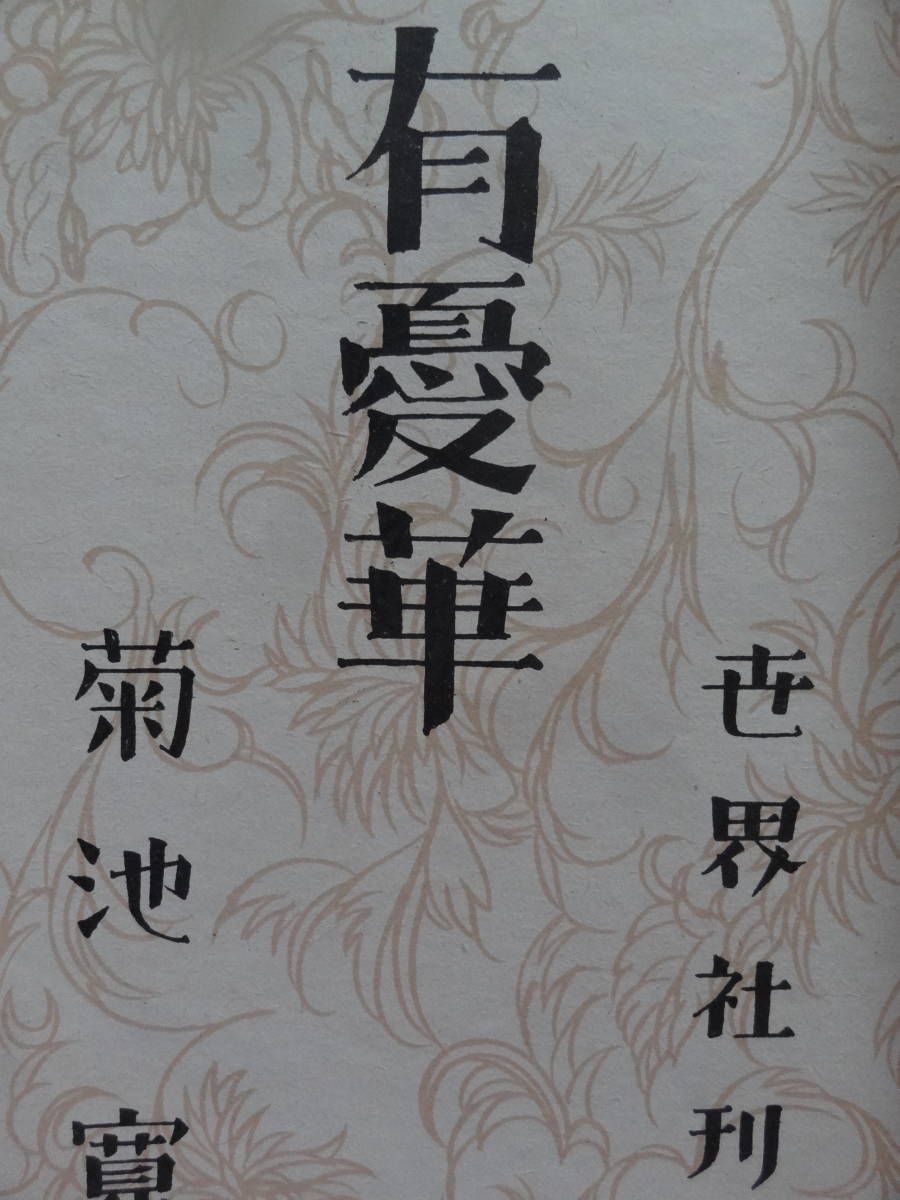 世界社刊
有憂華
菊池寛